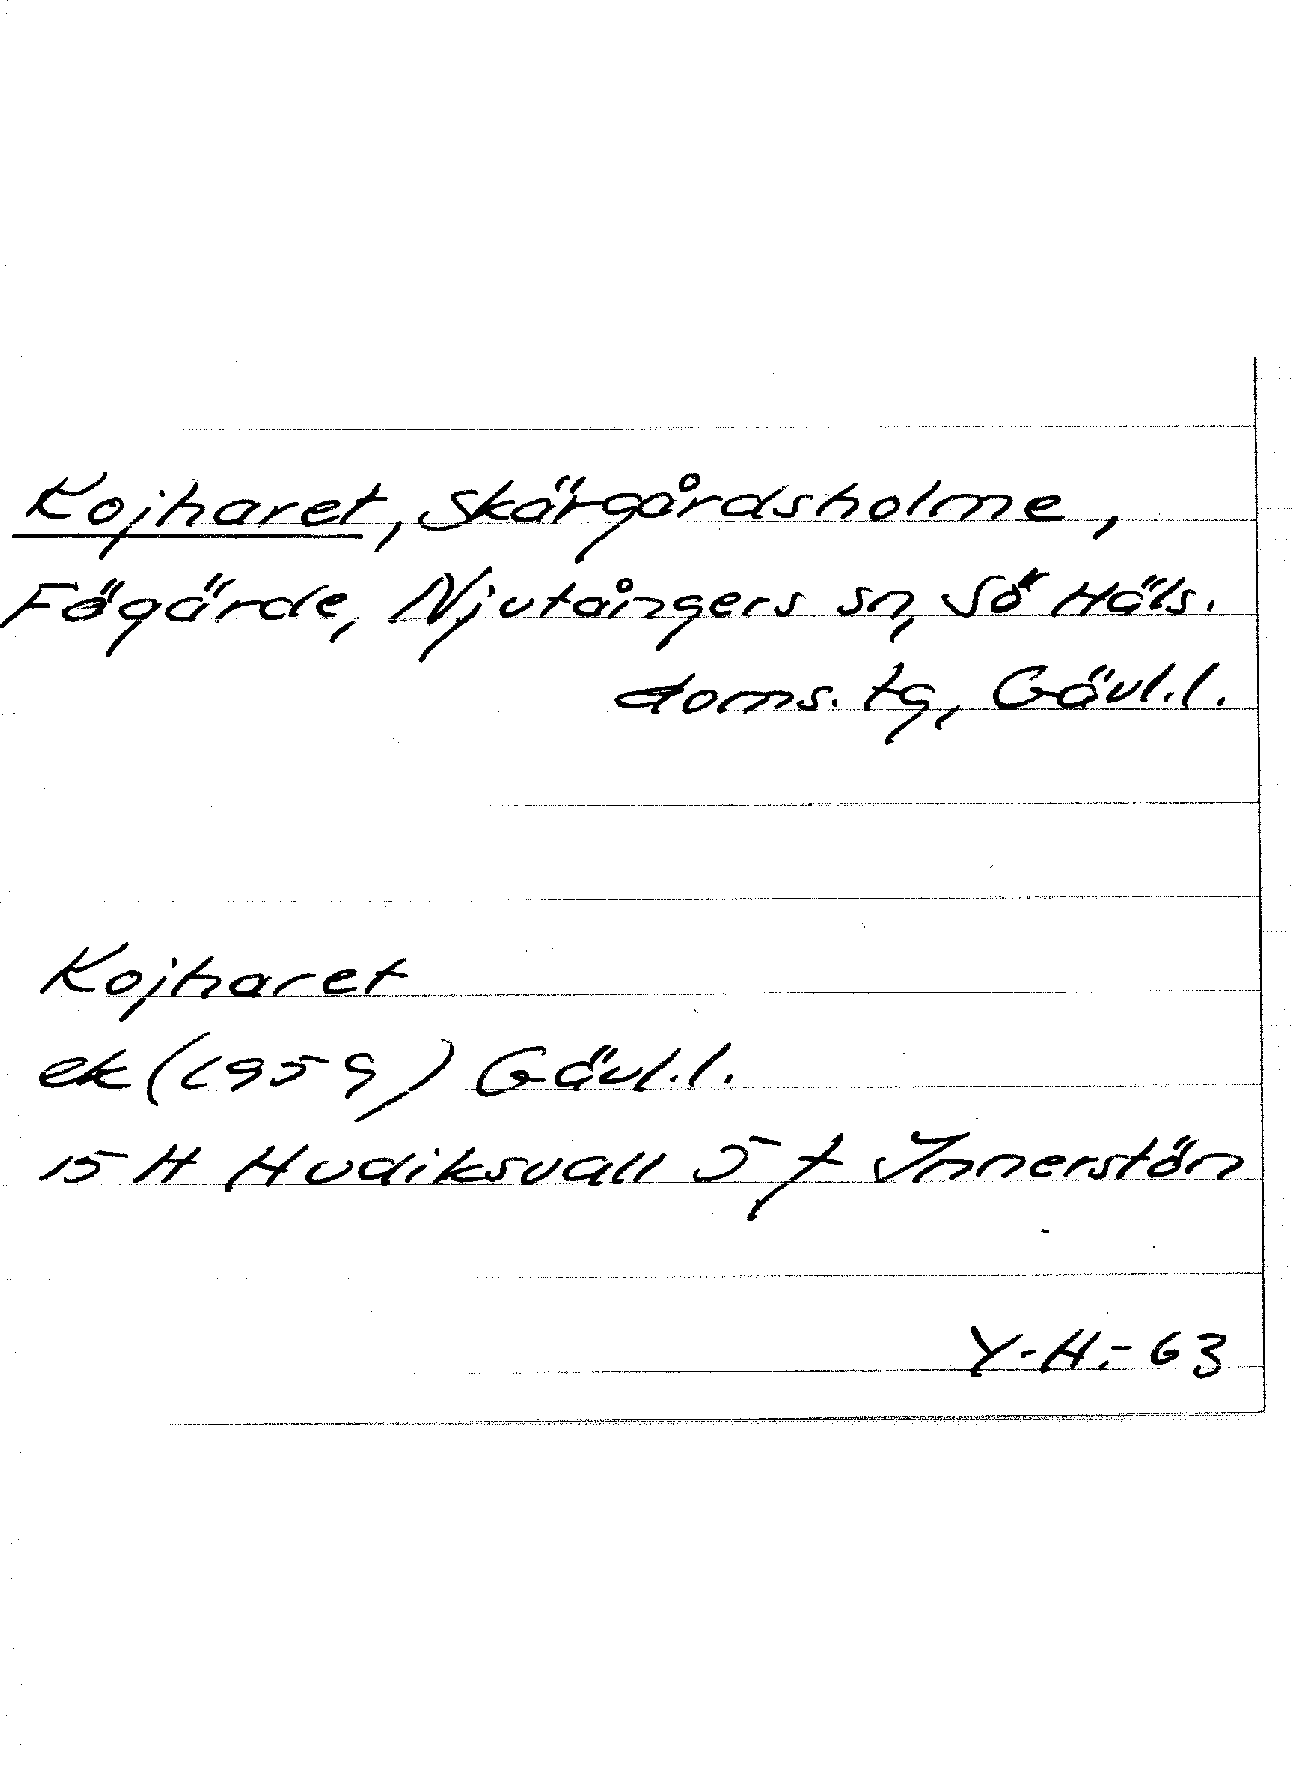 Kojharet, Skärgårdsholme,
Fögärde, Njutångers sn, Sö Häls.
doms. tg, Gävl.l.
Kojharet
ek (1959) Gävl.l.
15 H Hudiksvall 5 f Innerstön
Y-H.-63